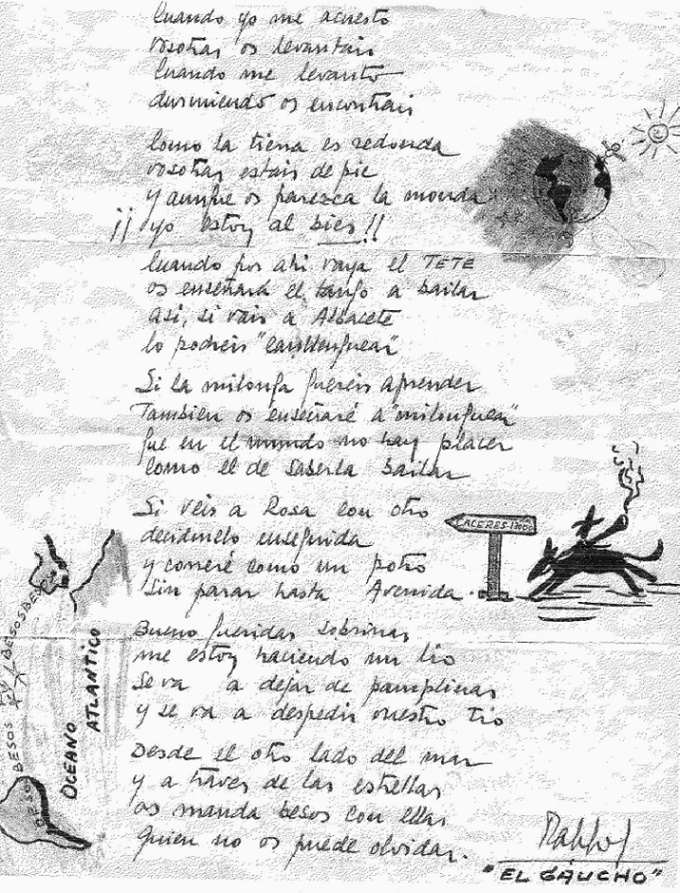 Cuando yo me acuesto
vosotras os levantais
Cuando me levanto
durmiendo os encontrais
Como la tierra es redonda
vosotras estais de pie
y aunque os parezca la monda
¡¡ yo estoy al bies!!
Cuando por ahi vaya el TETE
os enseñará el tango a bailar
asi, si vais a Albacete
lo podreis
Si la milonga quereis aprender
Tambien os enseñaré a "milonguear"
que en el mundo no hay placer
como el de saberla bailar
Si veis a Rosa con otro
decidmelo enseguida
y correré como un potro
sin parar hasta Avenida.
CACERES
Bueno queridas sobrinas
me estoy haciendo un lio
se va a dejar de pamplinas
y se va a despedir vuestro tio
Desde el otro lado del mar
y a traves de las estrellas
os manda besos con ellas
quien no os puede olvidar.
OCEANO
ATLANTICO
BESOS
BESOS
"EL GAUCHO"